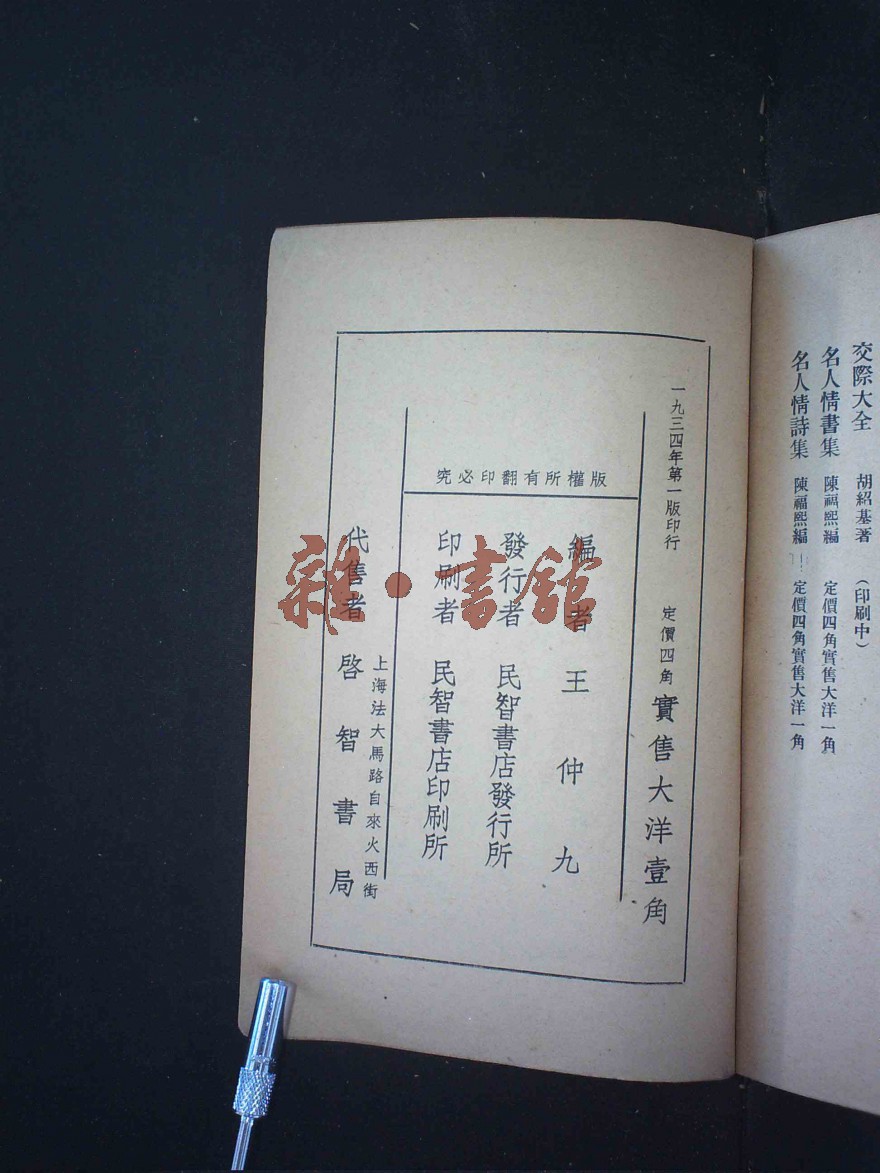 交際大全 胡紹基著 (印刷中)
名人情書集 陳福熙編 定價四角實售大洋一角
名人情詩集 陳福熙編 定價四角實售大洋一角
一九三四年第一版印行
定價四角 實售大洋壹角
版權所有翻印必究
編者 王仲九
發行者 民智書店發行所
印刷者 民智書店印刷所
上海法大馬路自來火西街
代售者 啓智書局
雜·書館